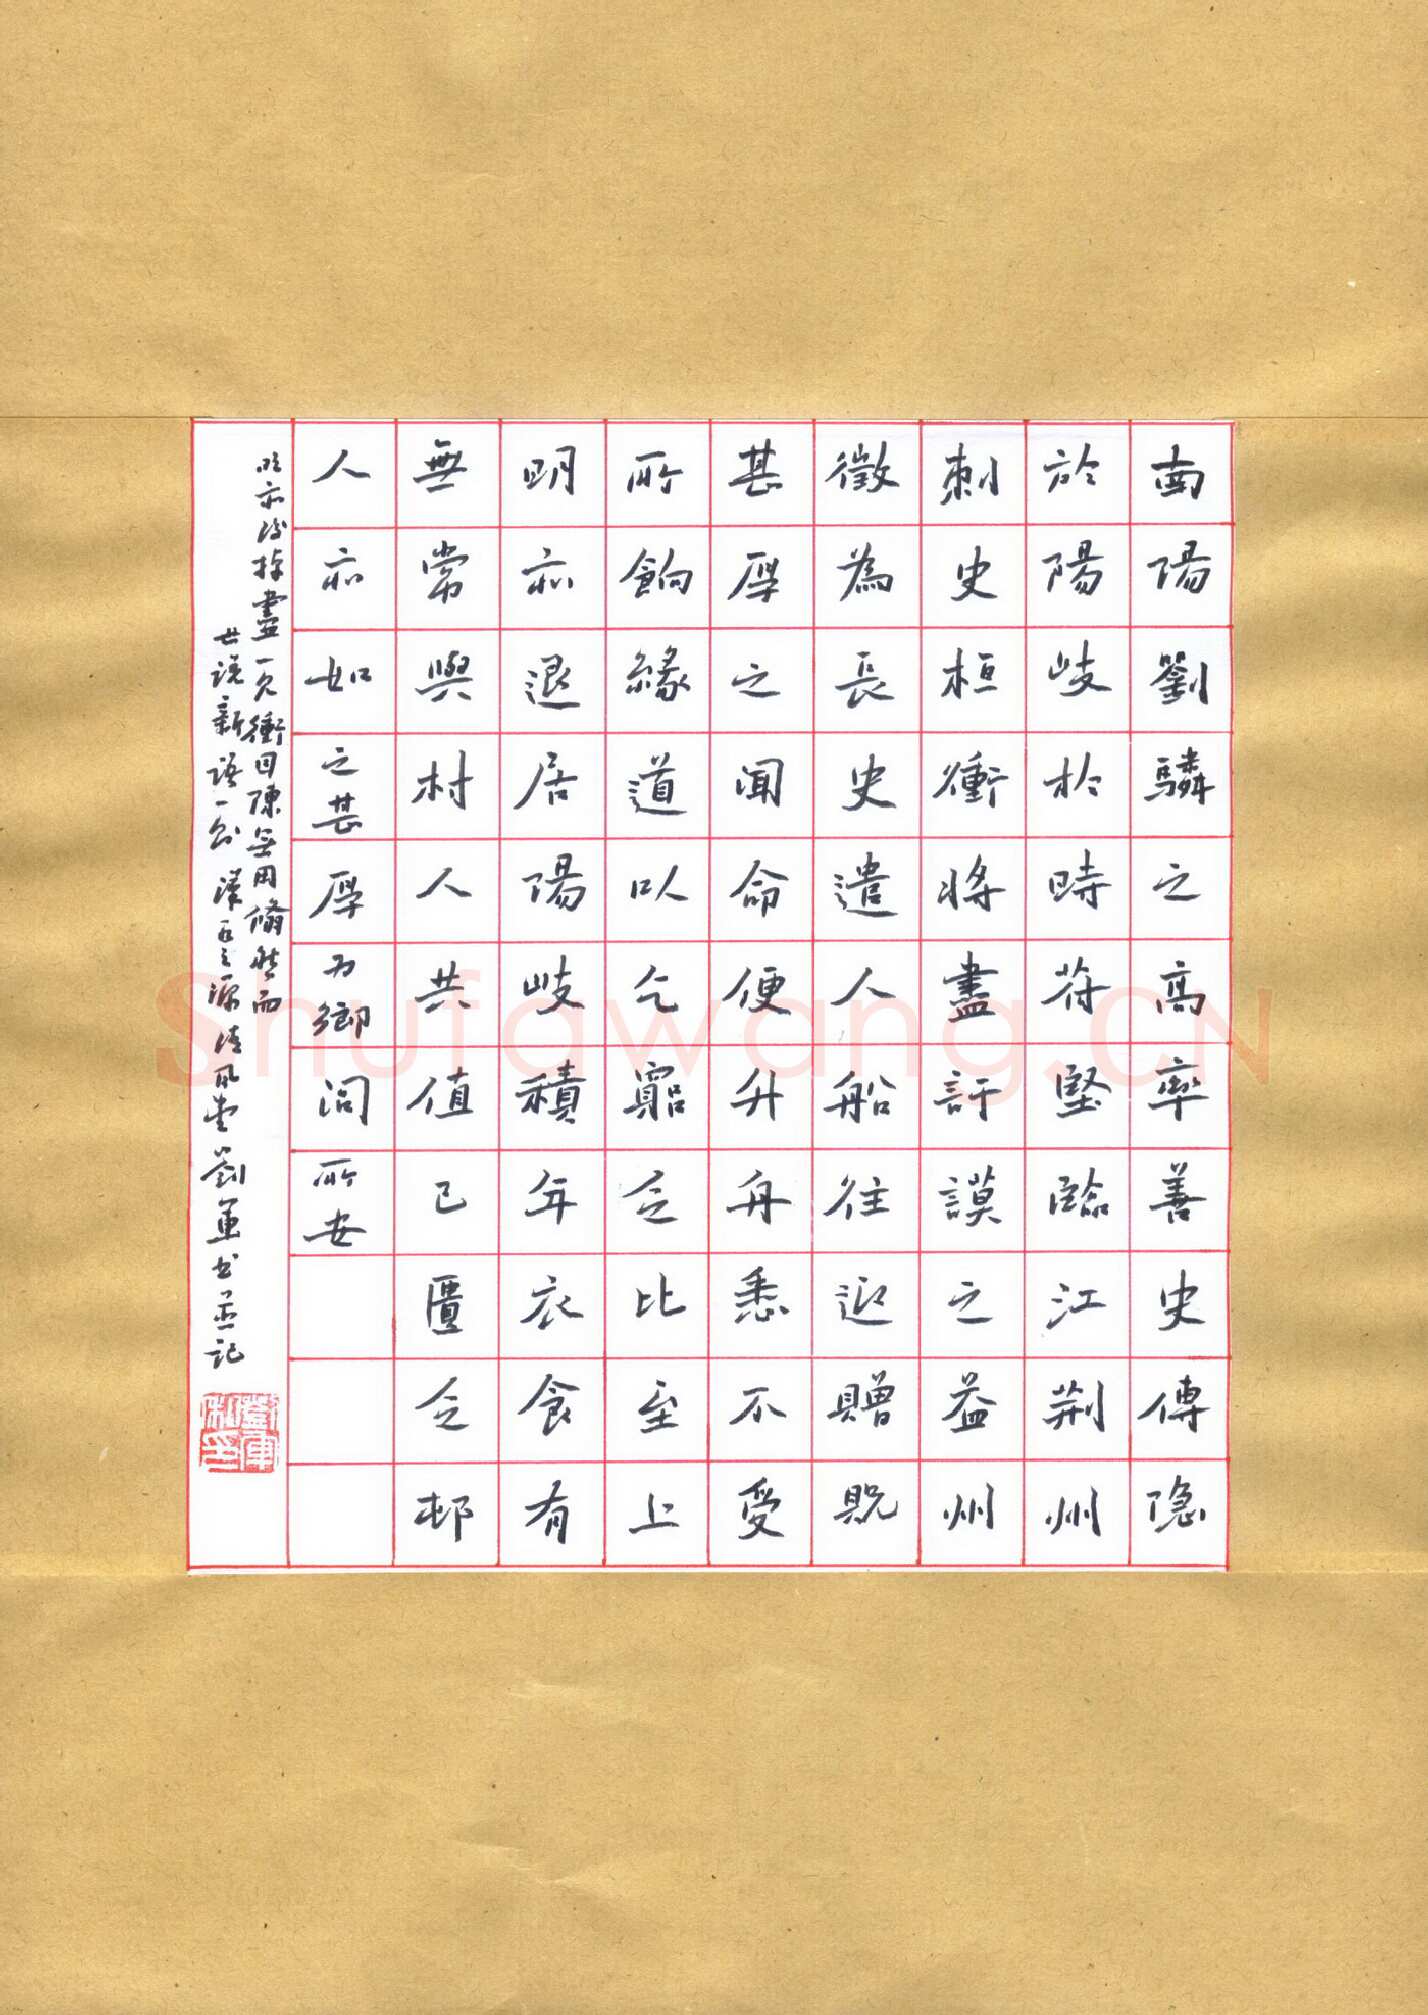 南陽劉驎之高率善史傳隐
於陽岐於時苻堅臨江荆州
刺史桓衝將盡訏謨之益州
徵為長史遣人船往迎贈貺
甚厚之聞命便升舟悉不受
所餉緣道以乞窮乏比至上
明亦退居陽岐積年衣食有
無常與村人共值己匱乏邨
人亦如之甚厚为鄉閭所安
盡一見衝因陳無用翛然而
世説新語一則 清風堂劉軍书並記
Shufawang.CN